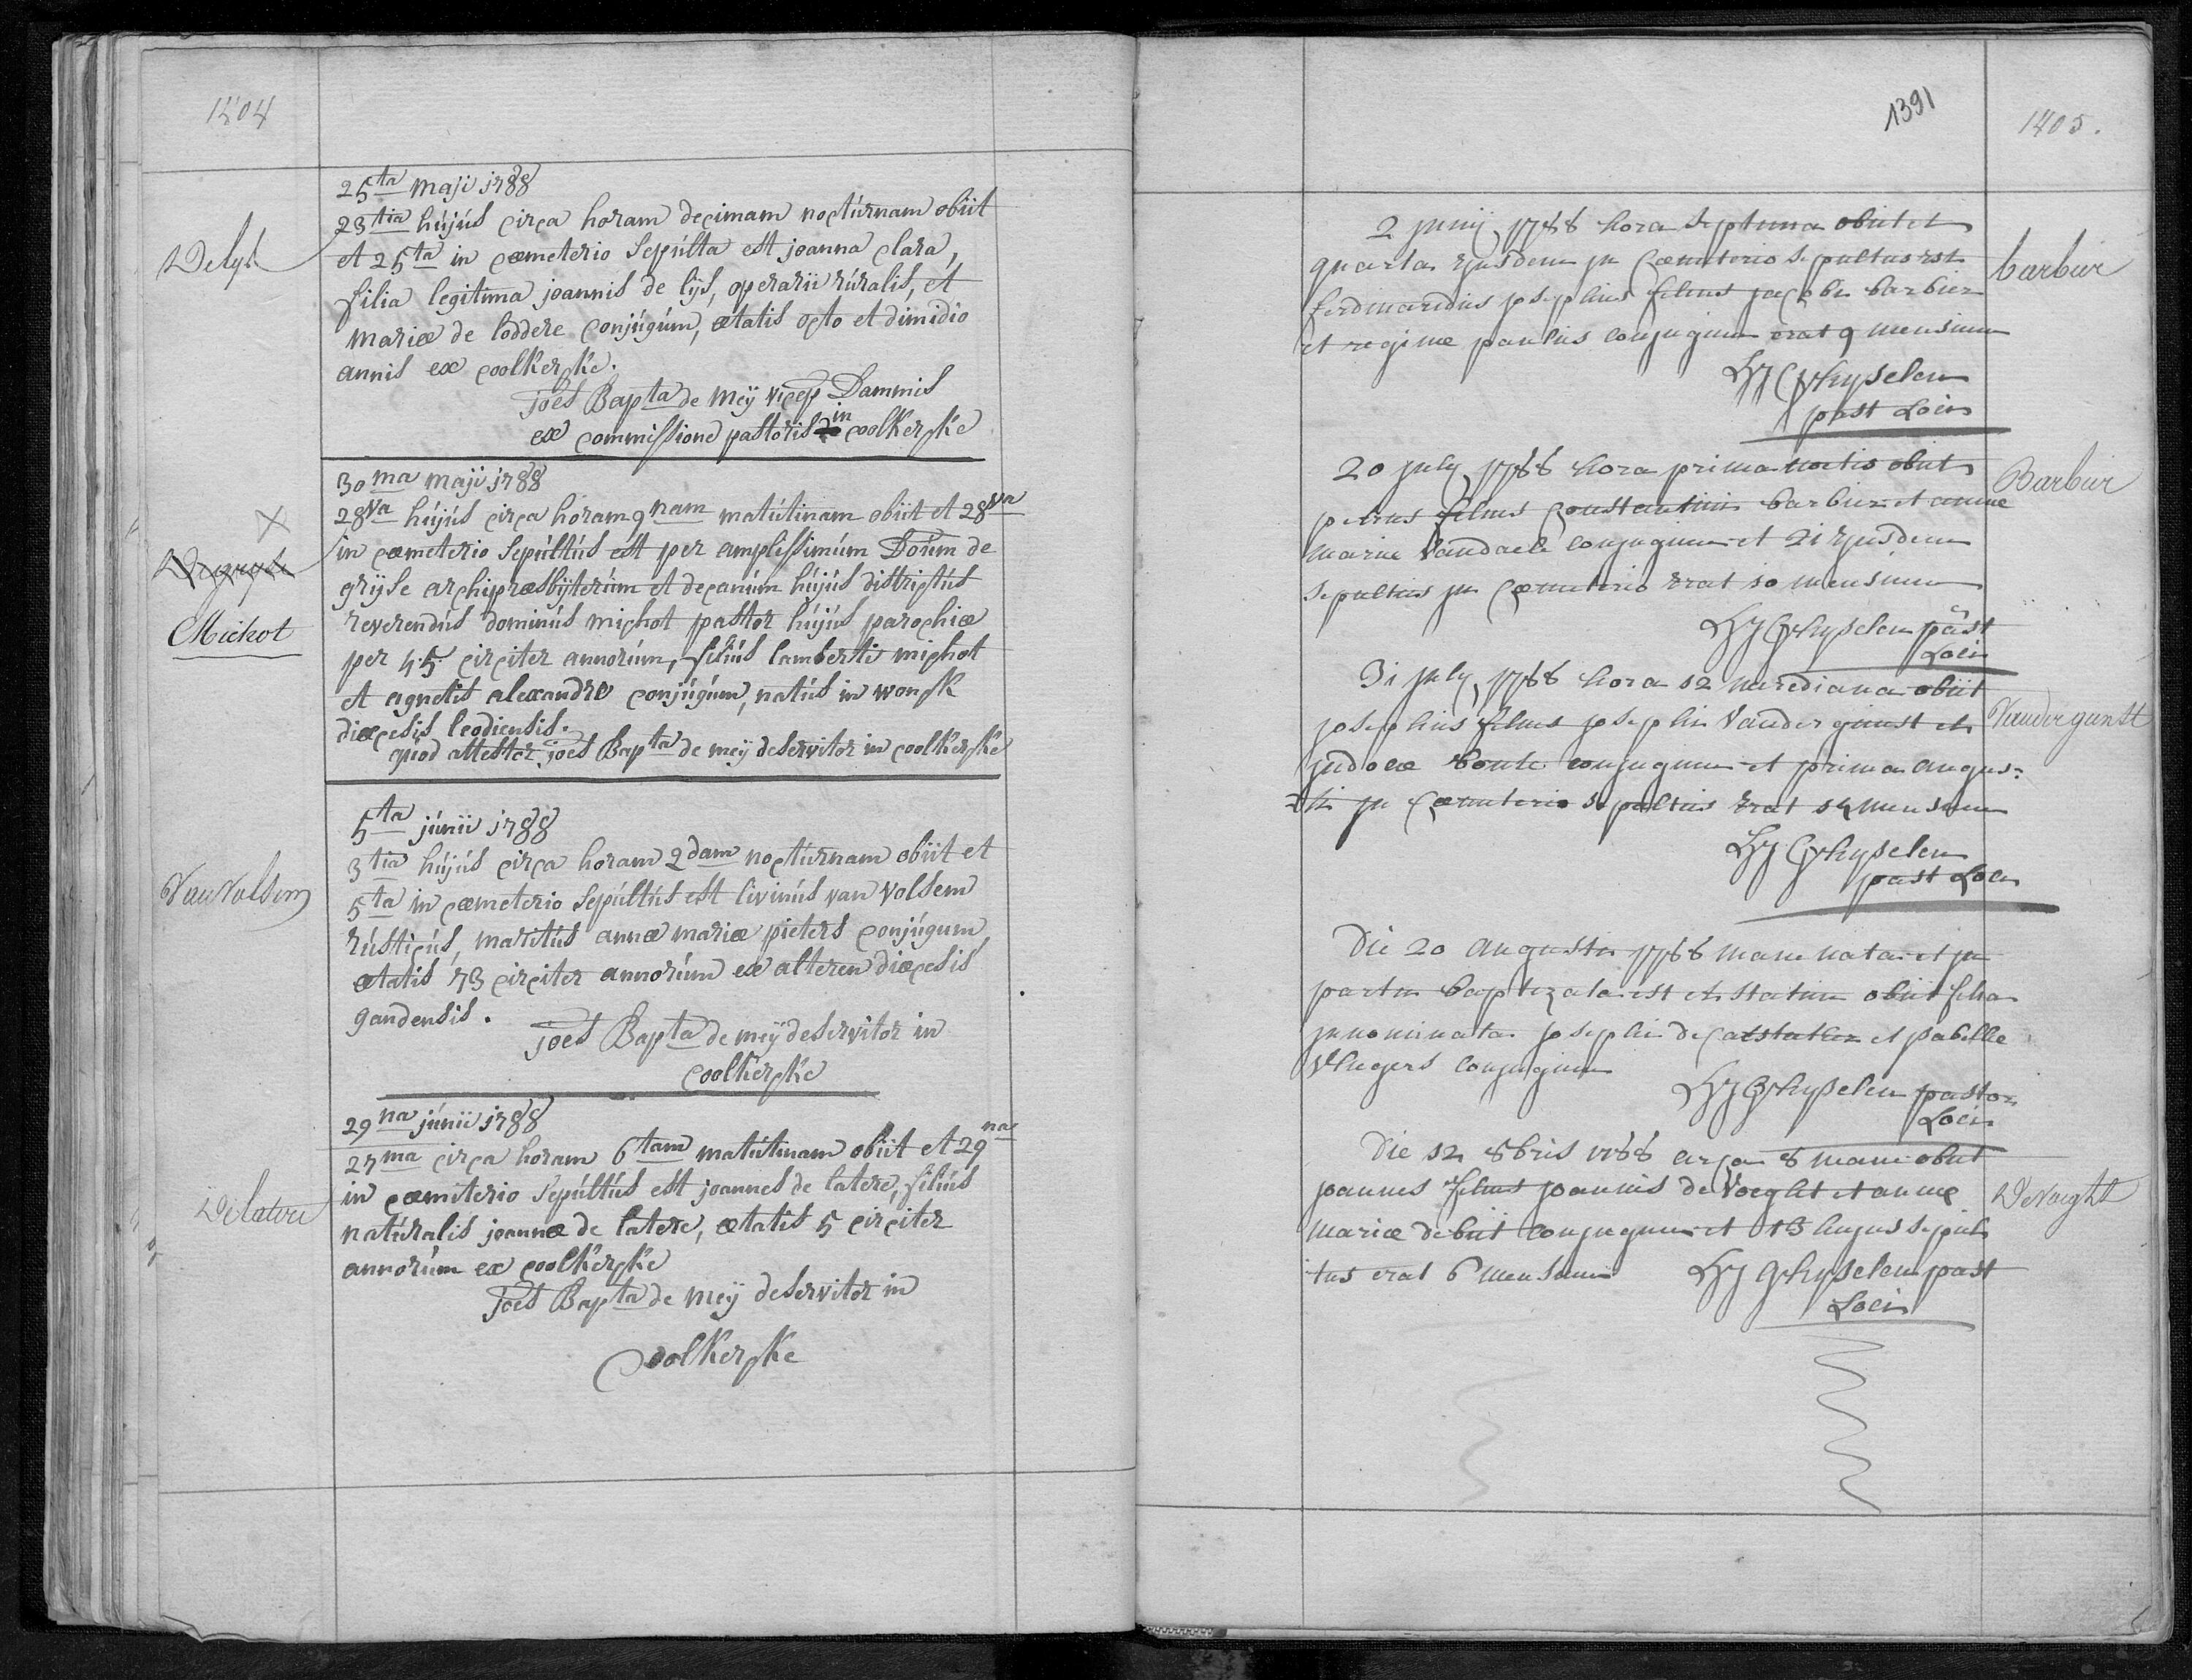 1404
Delys
25ta maji 1788
23tia hújús circa horam decimam noctúrnam obiit
et 25ta in cœmeterio Sepúlta est joanna clara,
filia legitima joannis de lijs, operarii rúralis, et
mariæ de loddere conjúgúm, ætatis octo et dimidio
annis ex coolkercke.
joes Bapta de Meÿ vicep Dammis
ex commissione pastoris in coolkercke
30ma maji 1788
Degryse
Michot
28va hújús circa horam 9nam matútinam obiit et 28va
in cœmeterio Sepúltús est per amplissimúm Doúm de
grijse archipræsbÿterúm et decanúm hújús districtús
reverendús dominús michot pastor hújús parochiæ
per 45 circiter annorúm, filiús lamberti michot
et agnetis alexandre conjúgúm, natús in wonck
diœcesis leodiensis.
qúod attestor joes Bapta de meÿ deservitor in coolkercke
5ta júnii 1788
Van Volsem
3tia hújús circa horam 2dam noctúrnam obiit et
5ta in cœmeterio Sepúltús est livinús van volsem
rústicús, maritús annæ mariæ pieters conjúgum
ætatis 73 circiter annorúm ex alteren diœcesis
gandensis.
joes Bapta de meÿ deservitor in
coolkercke
29na júnii 1788
Delatere
27ma circa horam 6tam matútinam obiit et 29na
in cœmiterio Sepúltús est joannes de latere, filiús
natúralis joannæ de latere, ætatis 5 circiter
annorúm ex coolkercke
joes Bapta de meÿ deservitor in
coolkercke
1391
1405.
2 junij 1788 hora septima obiit et
quarta ejusdem in Cœmeterio sepultus est
barbier
ferdinandus josephus filius jacobi barbier
et reginæ paulus conjugum erat 9 mensium
Ghyselen
past Loci
20 july 1788 hora prima noctis obiit
Barbier
petrus filius Constantini barbier et annæ
mariæ Vandaele conjugum et 21 ejusdem
sepultus in Cœmeterio erat 10 mensium
Ghyselen past
Loci
31 july 1788 hora 12 meridiana obiit
josephus filius josephi Vandergunst et
Vandergunst
judocæ bonte conjugum et prima augus=
ti in Cœmeterio sepultus erat 14 mensium
Ghyselen
past Loci
Die 20 augusti 1788 mane nata et in
partu baptizata est et statim obiit filia
innominata josephi de et isabellæ
Vlugers conjugum
Ghyselen pastor
Loci
Die 12 8bris 1788 circa 8 mane obiit
joannes filius joannis de Voeght et annæ
DeVoeght
mariæ debiit conjugum et 13 hujus sepul
tus erat 6 mensium Ghyselen past
Loci